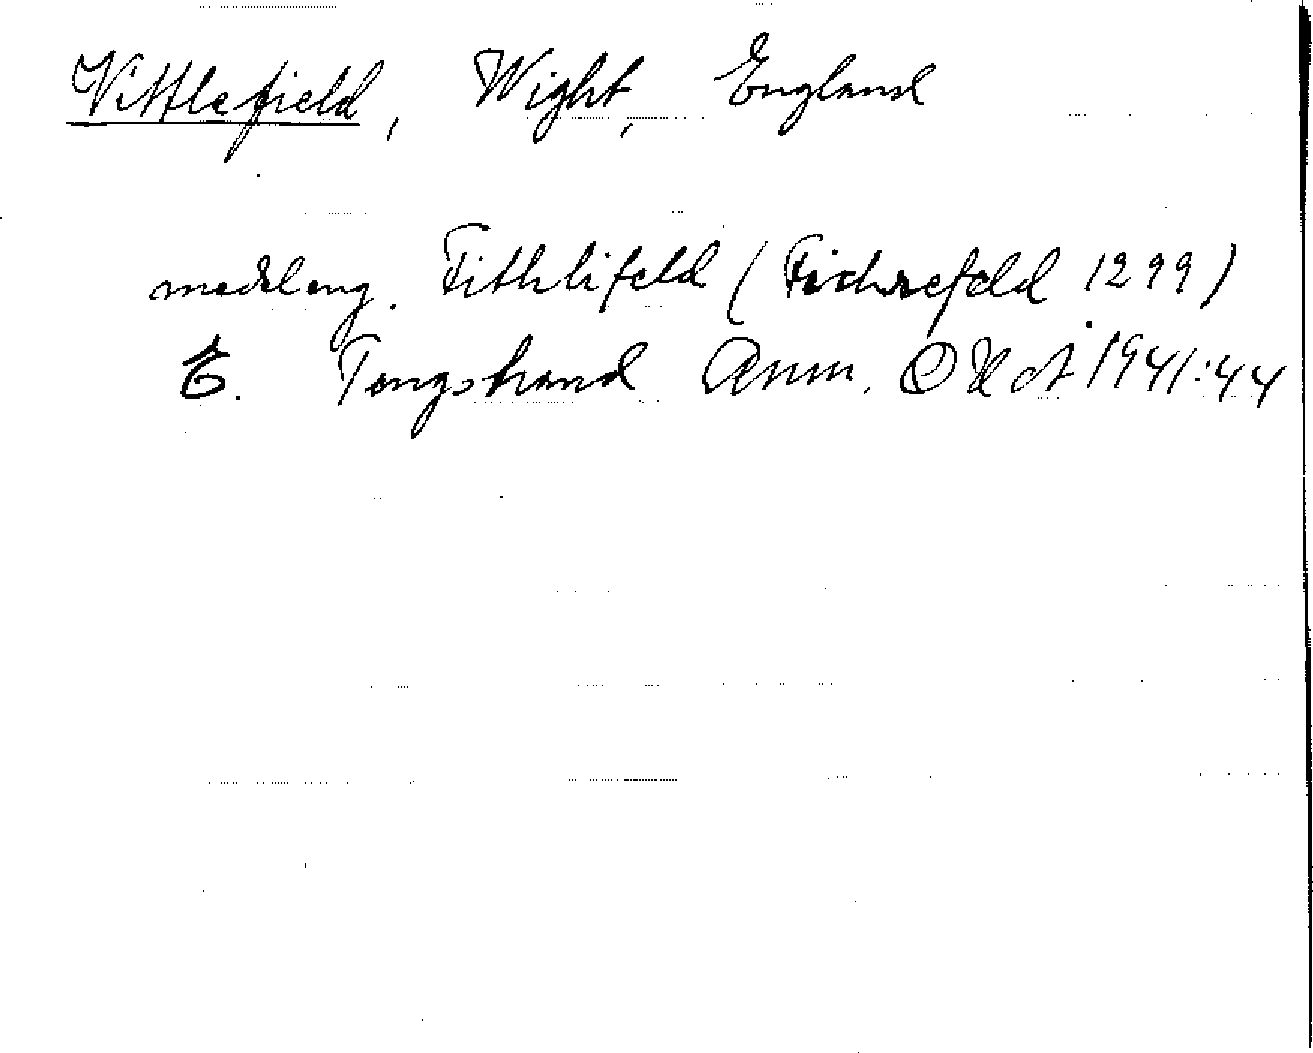 Vittlefield, Wight, England
medeleng. Fithlifeld (Fichrefeld 1299)
E. Tengstrand Anm. OXoA 1941:44